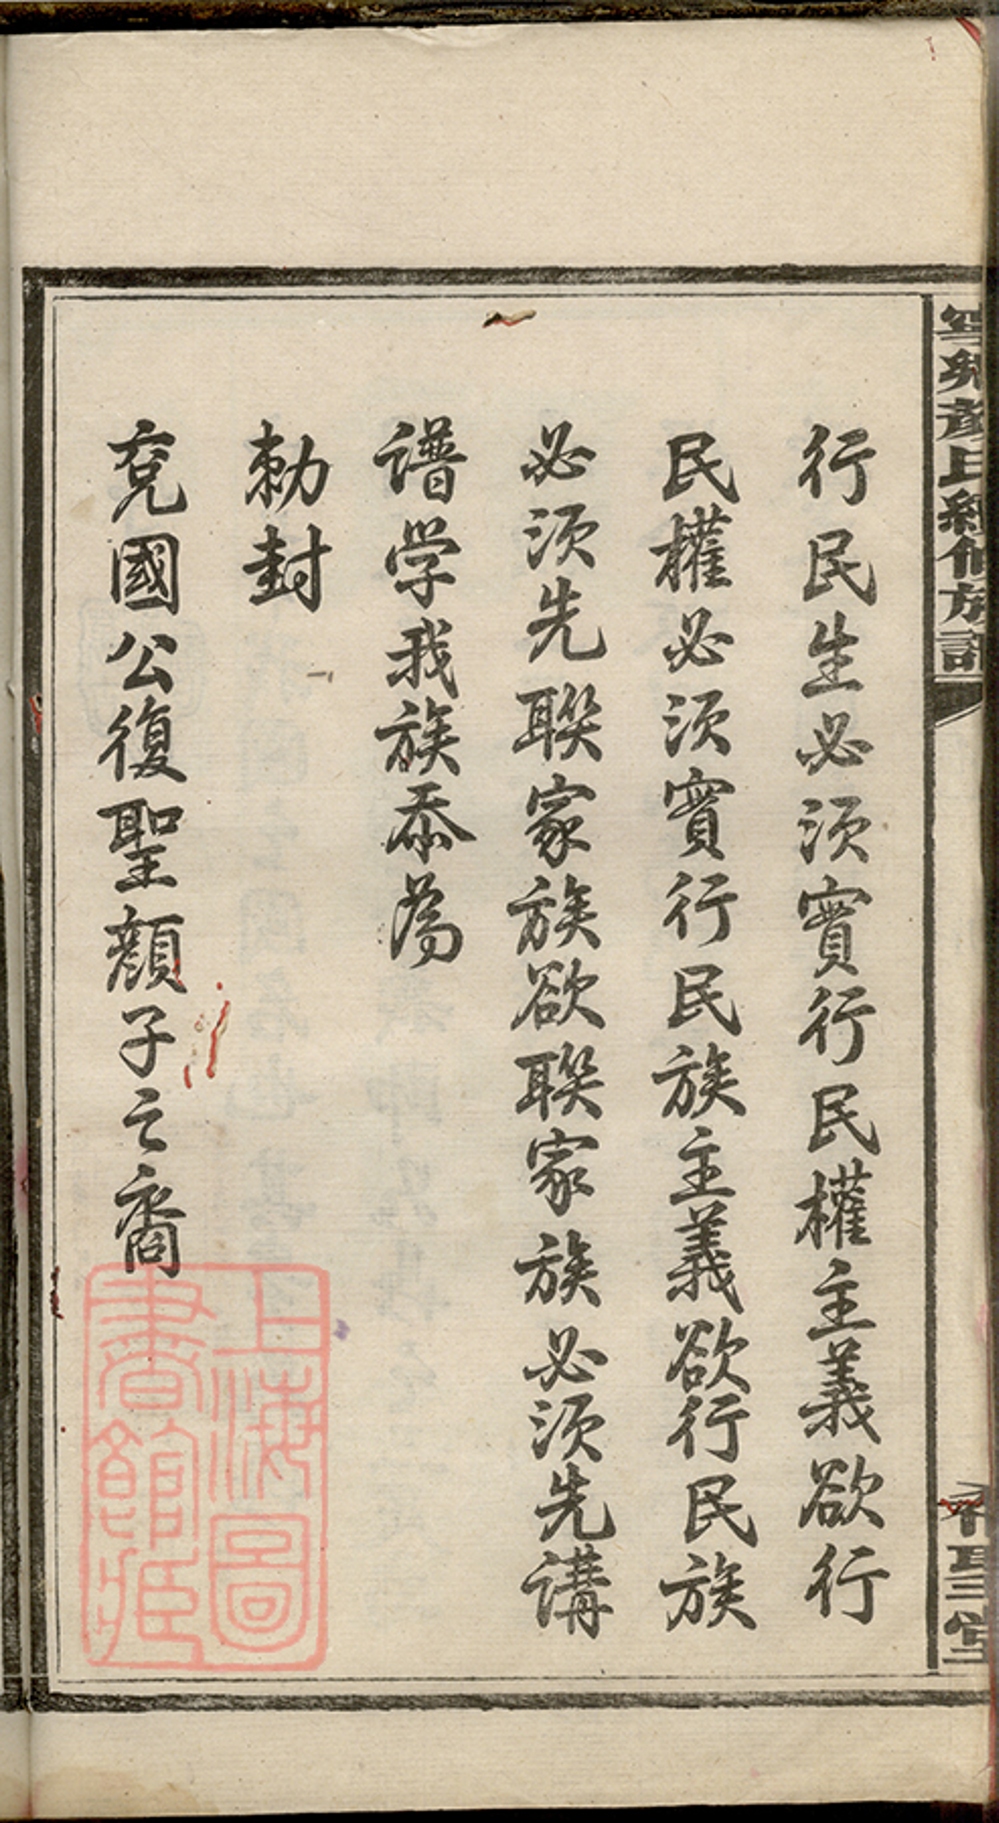 行民生必須實行民權主義欲行
民權必須實行民族主義欲行民族
必須先聯家族欲聯家族必須先講
譜学我族忝為
勅封
兗國公復聖顏子之裔
顏氏續修族譜
復聖堂
上海圖
書館藏